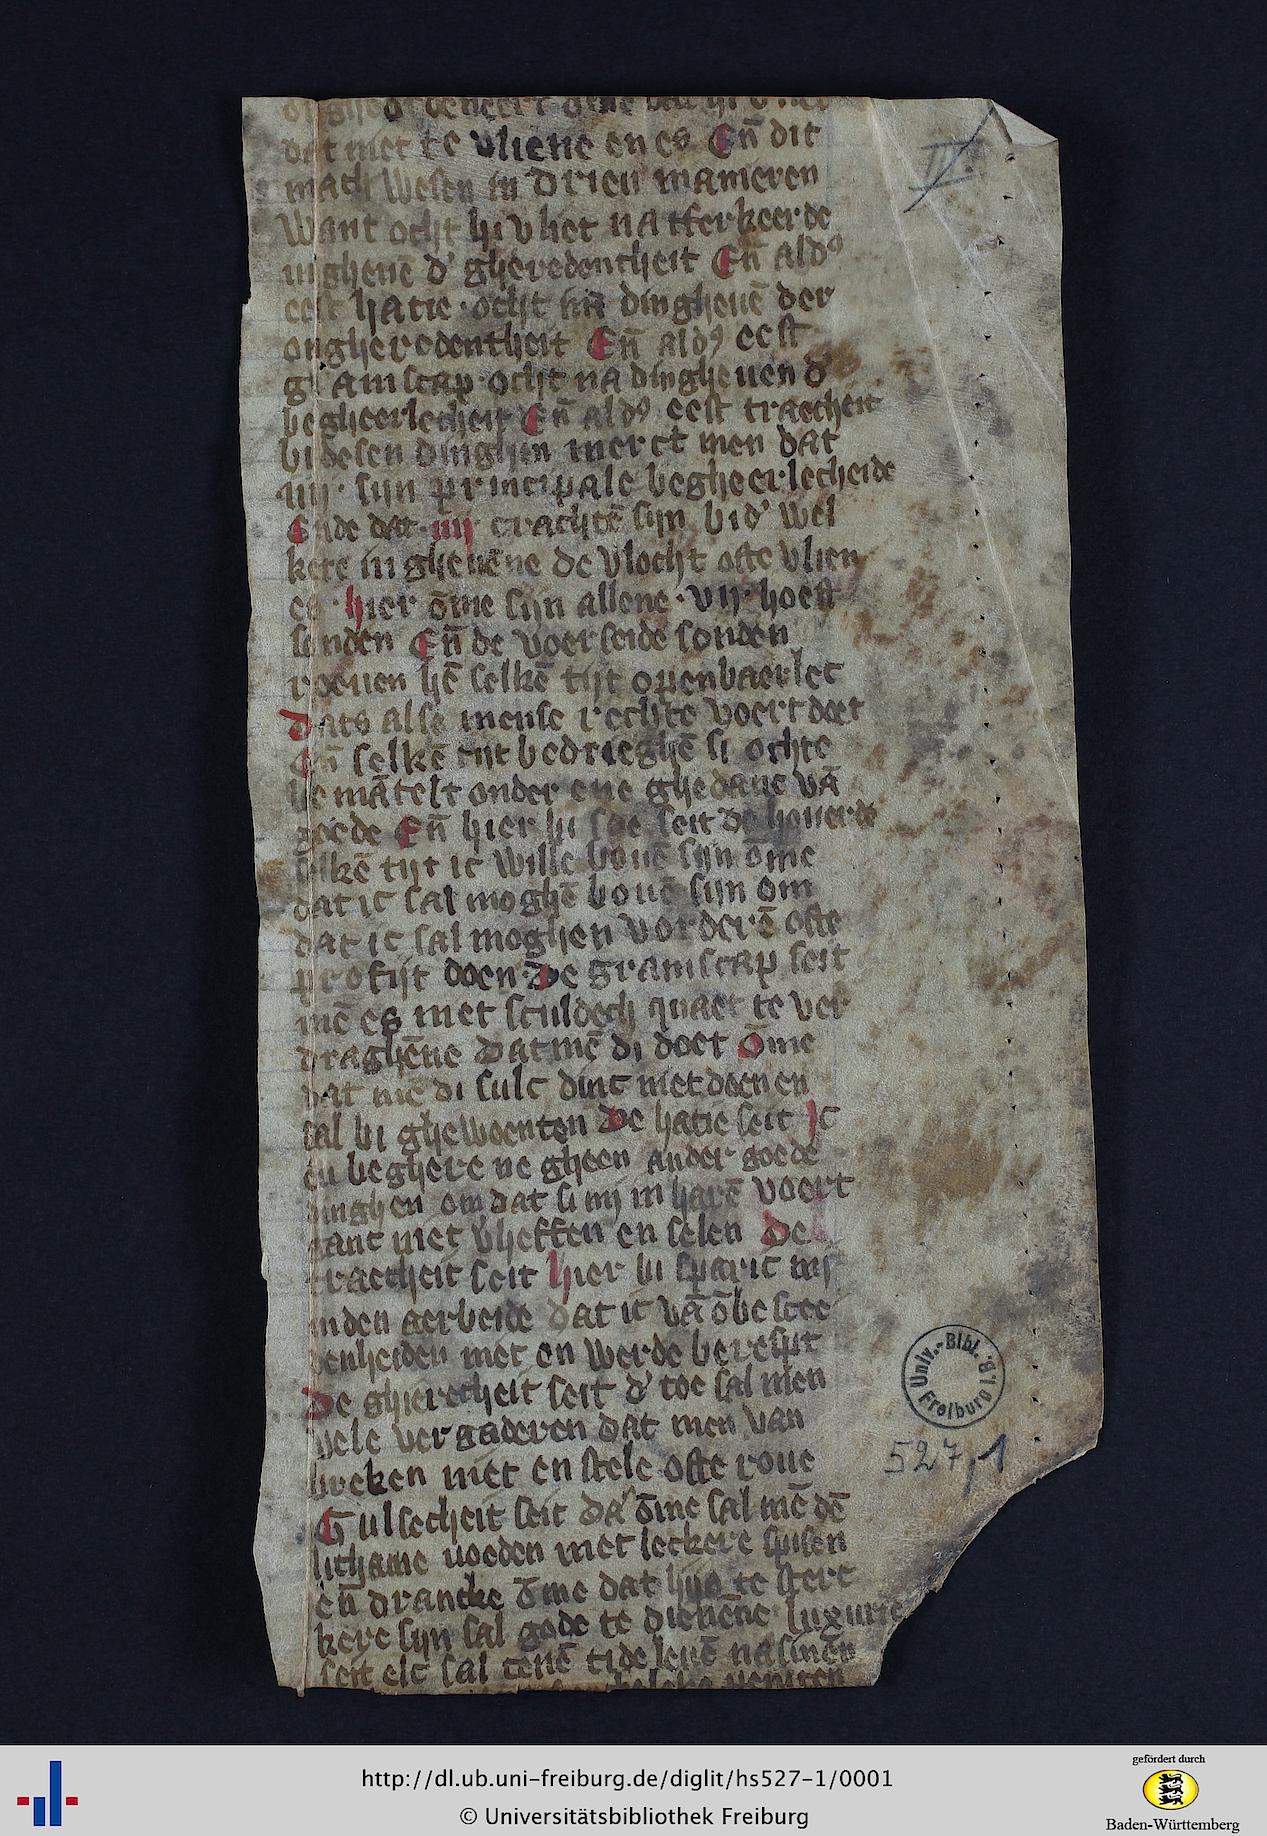 dat niet te vliene en es En̄ dit
mach Wesen in drien manieren
Want ocht hi vliet na tferkeerde
inghenē d' gheredentheit En̄ aldꝰ
eest hatie · ocht na dingheuē der
ongheredentheit En̄ aldꝰ eest
gramscap · ocht na dingheuen d'
begheerlecheit En̄ aldꝰ eest traecheit
bi desen dinghen merct men dat
iiij · sijn principale begheerlecheide
Ende dat · iiij crachtē sijn bi d' wel
kere in gheuēne de vlocht ofte vlien
es · hier ōme sijn allene · vij · hoeft
sonden En̄ de voerseide sonden
roeuen hē selkē tijt openbaerlec
dats alse mense rechte voert doet
En̄ selkē tijt bedrieghē si ochte
be mātelt onder ene ghedane vā
goede En̄ hier bi soe seit de houerde
selkē tijt ic Wille bouē sijn ōme
dat ic sal moghē bouē sijn om
dat ic sal moghen vorderē ofte
profijt doen · De gramscap seit
mē es niet sculdech quaet te ver
draghēne Datmē di doet ōme
dat mē di sulc dinc niet doen en
sal bi ghewoenten De hatie seit Ic
en beghere ne gheen ander goede
dinghen om dat si mi in harē voert
gant niet v'heffen en selen De
traecheit seit hier bi sparic mi
inden aerbeide dat ic vā ōbescee
denheiden niet en werde berespt
De ghierecheit seit d' toe sal men
vele vergaderen dat men van
breken niet en stele ofte roue
Gulsecheit seit da' ōme sal mē dē
lichame voeden met leckere spisen
en̄ drancke ōme dat hijs te sterc
kere sijn sal gode te dienēne luxurie
seit elc sal tenē tide leuē na sinēn
Univ.-Bibl. Freiburg i.B.
527,1
http://dl.ub.uni-freiburg.de/diglit/hs527-1/0001
© Universitätsbibliothek Freiburg
gefördert durch
Baden-Württemberg